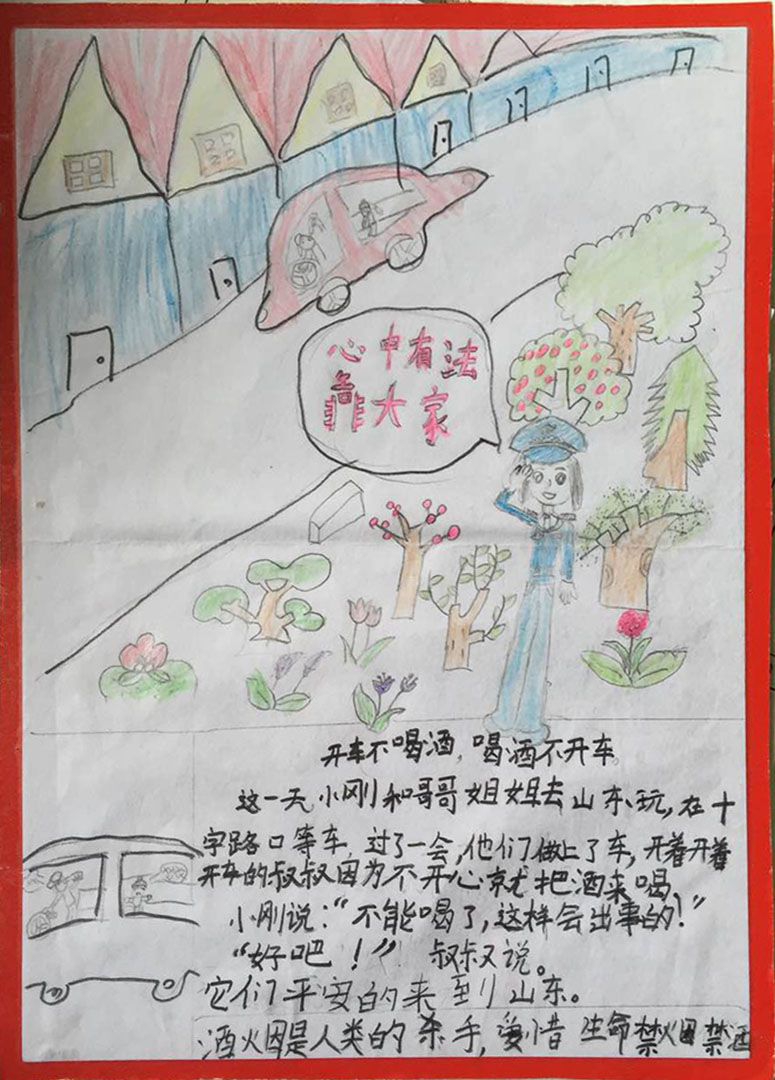 心中有法
靠大家
开车不喝酒,喝酒不开车
这一天小刚和哥哥姐姐去山东玩,在十
字路口等车,过了一会,他们做上了车,开着开着
开车的叔叔因为不开心就把酒来喝,
小刚说:“不能喝了,这样会出事的!”
“好吧!” 叔叔说。
它们平安的来到山东。
酒烟是人类的杀手,爱惜生命禁烟禁酒